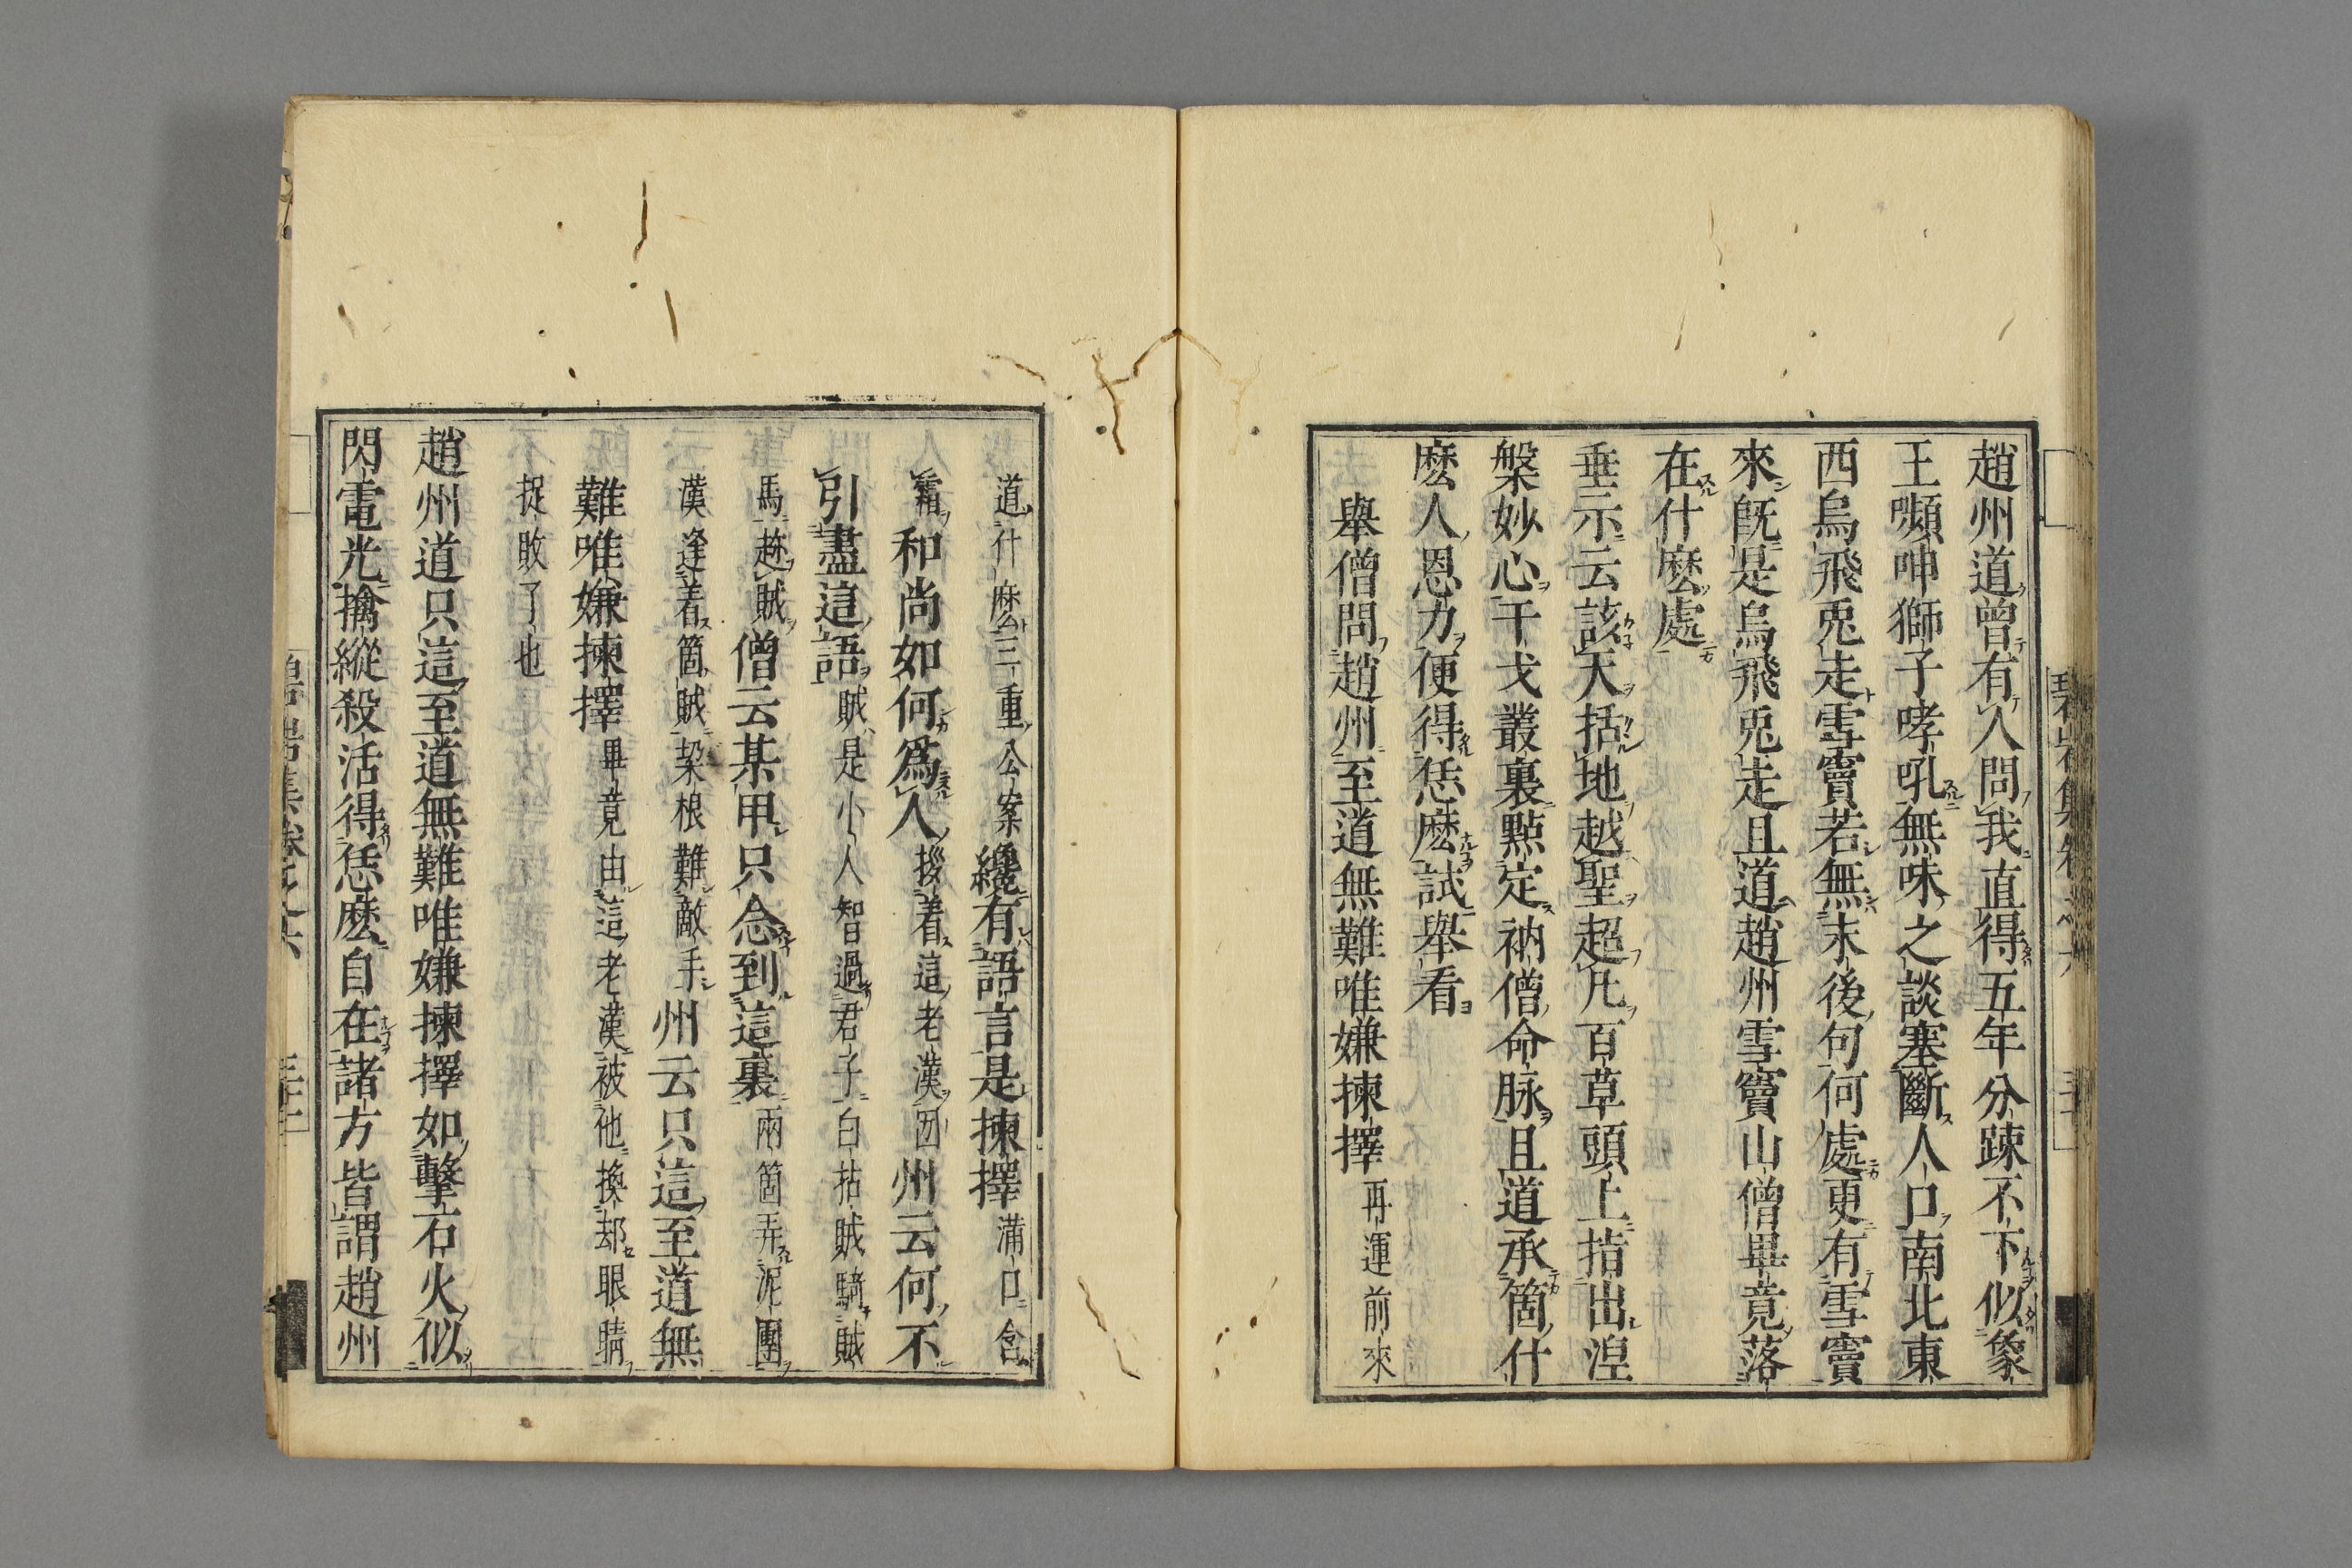 趙州道曾有人問我直得五年分踈不下似象
王嚬呻獅子哮吼無味之談塞斷人口南北東
西烏飛兎走雪竇若無末後句何處更有雪竇
來既是烏飛兎走且道趙州雪竇山僧畢竟落
在什麽處
垂示云該天括地越聖超凡百草頭上指出涅
槃妙心干戈叢裏點定衲僧命脉且道承箇什
麽人恩力便得恁麽試舉看
舉僧問趙州至道無難唯嫌揀擇再運前來
道什麽三重公案纔有語言是揀擇満口含
霜和尚如何爲人拶着這老漢㘞州云何不
引盡這語賊是小人智過君子白拈賊騎賊
馬趂賊僧云某甲只念到這裏兩箇弄泥團
漢逢着箇賊梷根難敵手州云只這至道無
難唯嫌揀擇畢竟由這老漢被他換却眼睛
捉敗了也
趙州道只這至道無難唯嫌揀擇如擊石火似
閃電光擒縱殺活得恁麽自在諸方皆謂趙州